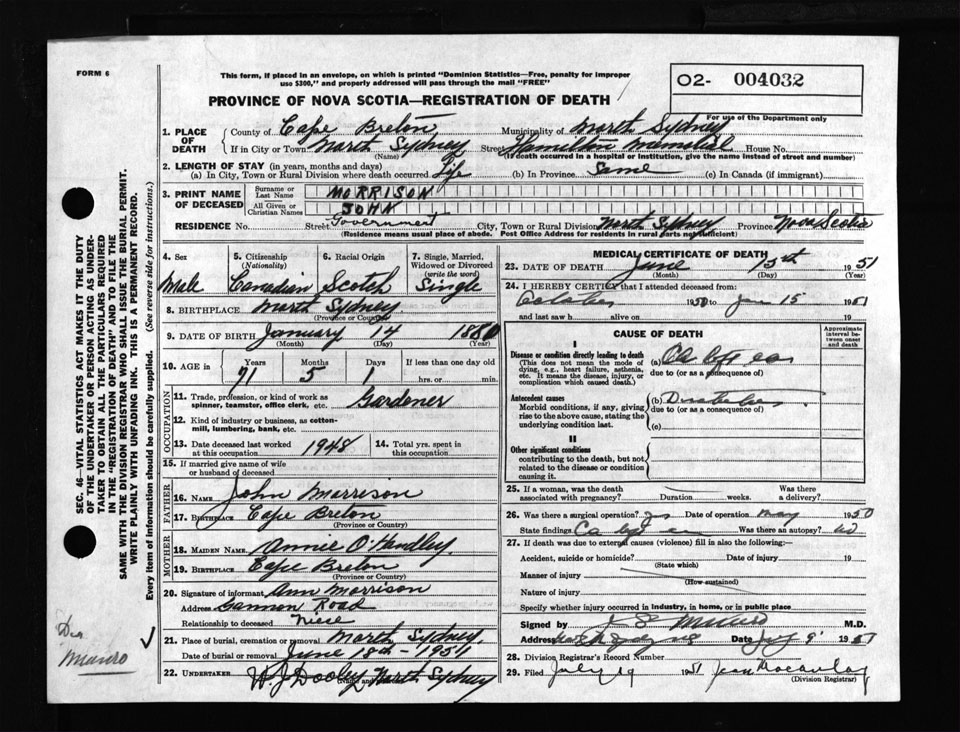 FORM 6
This form, if placed in an envelope, on which is printed "Dominion Statistics—Free, penalty for improper
use $300," and properly addressed will pass through the mail "FREE"
PROVINCE OF NOVA SCOTIA—REGISTRATION OF DEATH
O2- 004032
For use of the Department only
1. PLACE OF DEATH { County of Cape Breton Municipality of North Sydney
If in City or Town North Sydney Street Hamilton Memorial House No.
(Name) (If death occurred in a hospital or institution, give the name instead of street and number)
2. LENGTH OF STAY (in years, months and days)
(a) In City, Town or Rural Division where death occurred Life (b) In Province Same (c) In Canada (if immigrant)
3. PRINT NAME OF DECEASED { Surname or Last Name MORRISON
All Given or Christian Names JOHN
RESIDENCE No. Street Government City, Town or Rural Division North Sydney Province Nova Scotia
(Residence means usual place of abode. Post Office Address for residents in rural parts not sufficient)
4. Sex Male
5. Citizenship (Nationality) Canadian
6. Racial Origin Scotch
7. Single, Married, Widowed or Divorced (write the word) Single
8. BIRTHPLACE North Sydney
(Province or Country)
9. DATE OF BIRTH January 14 1880
(Month) (Day) (Year)
10. AGE in { Years 71 Months 5 Days 1 If less than one day old hrs. or min.
OCCUPATION
11. Trade, profession, or kind of work as spinner, teamster, office clerk, etc. Gardener
12. Kind of industry or business, as cotton-mill, lumbering, bank, etc.
13. Date deceased last worked at this occupation 1948
14. Total yrs. spent in this occupation
15. If married give name of wife or husband of deceased
FATHER
16. NAME John Morrison
17. BIRTHPLACE Cape Breton
(Province or Country)
MOTHER
18. MAIDEN NAME Annie O'Handley
19. BIRTHPLACE Cape Breton
(Province or Country)
20. Signature of informant Ann Morrison
Address Gannon Road
Relationship to deceased Niece
21. Place of burial, cremation or removal North Sydney
Date of burial or removal June 18th - 1951
22. UNDERTAKER W. J. Dooley North Sydney
MEDICAL CERTIFICATE OF DEATH
23. DATE OF DEATH June 15th 1951
(Month) (Day) (Year)
24. I HEREBY CERTIFY that I attended deceased from:
1950 to June 15 1951
and last saw h alive on 19
CAUSE OF DEATH
Approximate interval between onset and death
I
Disease or condition directly leading to death (a)
(This does not mean the mode of dying, e.g., heart failure, asthenia, etc. It means the disease, injury, or complication which caused death.)
due to (or as a consequence of)
Antecedent causes (b) Diabetes
Morbid conditions, if any, giving rise to the above cause, stating the underlying condition last.
due to (or as a consequence of)
(c)
II
Other significant conditions
contributing to the death, but not related to the disease or condition causing it.
25. If a woman, was the death associated with pregnancy? Duration weeks. Was there a delivery?
26. Was there surgical operation? yes Date of operation May 1950
State findings Was there an autopsy? no
27. If death was due to external causes (violence) fill in also the following:—
Accident, suicide or homicide? Date of injury 19
(State which)
Manner of injury
(How sustained)
Nature of injury
Specify whether injury occurred in industry, in home, or in public place
Signed by Munro M.D.
Address Date 1951
28. Division Registrar's Record Number
29. Filed July 19 1951 Jean Macaulay
(Division Registrar)
SEC. 46—VITAL STATISTICS ACT MAKES IT THE DUTY
OF THE UNDERTAKER OR PERSON ACTING AS UNDER-
TAKER TO OBTAIN ALL THE PARTICULARS REQUIRED
IN THE "REGISTRATION OF DEATH" AND TO FILE THE
SAME WITH THE DIVISION REGISTRAR WHO SHALL ISSUE THE BURIAL PERMIT.
WRITE PLAINLY WITH UNFADING INK. THIS IS A PERMANENT RECORD.
Every item of information should be carefully supplied. (See reverse side for instructions.)
Munro